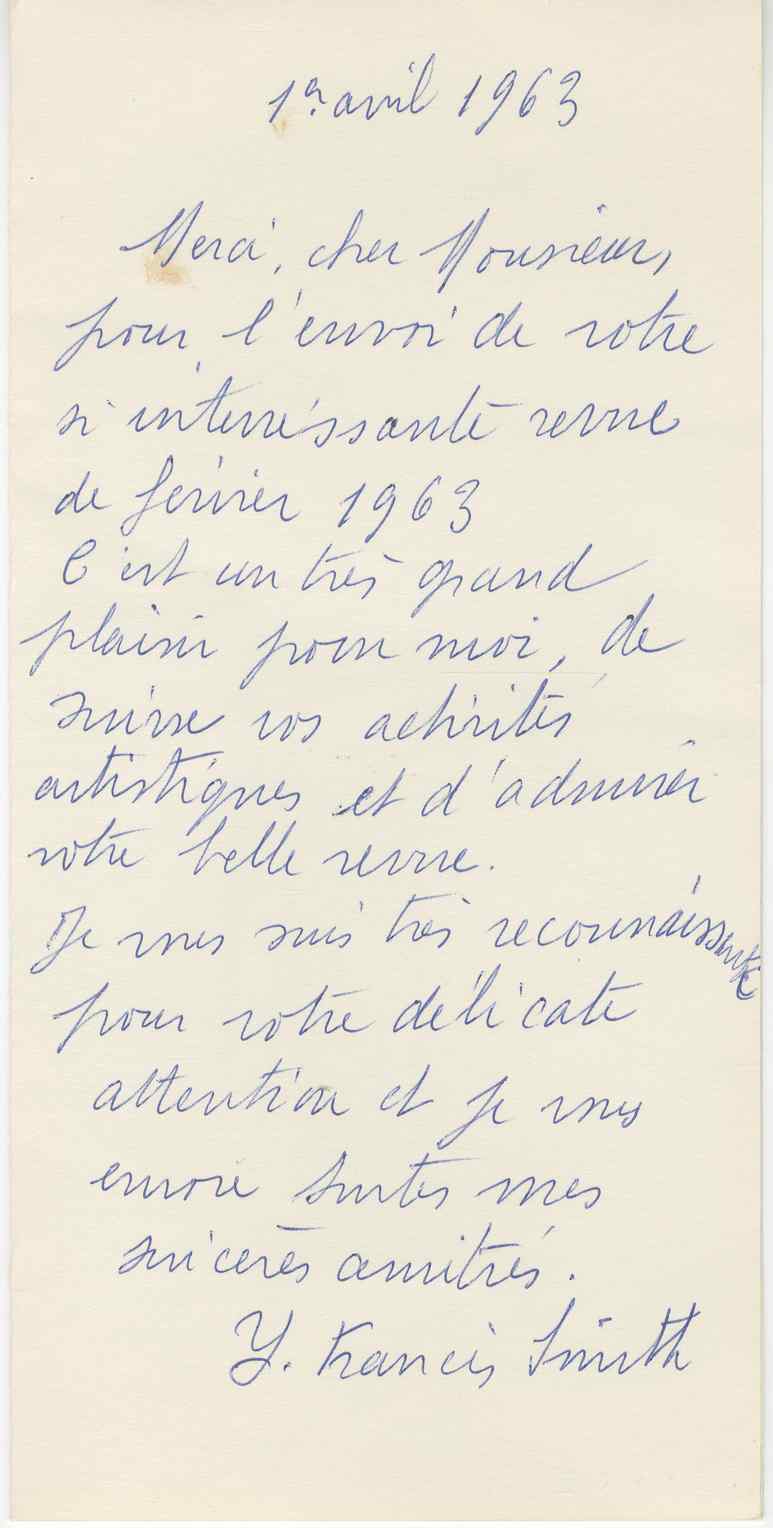 1er avril 1963
Merci, cher Monsieur,
pour l'envoi de votre
si interressante revue
de février 1963
C'est un très grand
plaisir pour moi, de
suivre vos activités
artistiques et d'admirer
votre belle revue.
Je vous suis très reconnaissante
pour votre délicate
attention et je vous
envoie toutes mes
sincères amitiés.
Y. Francis Smith